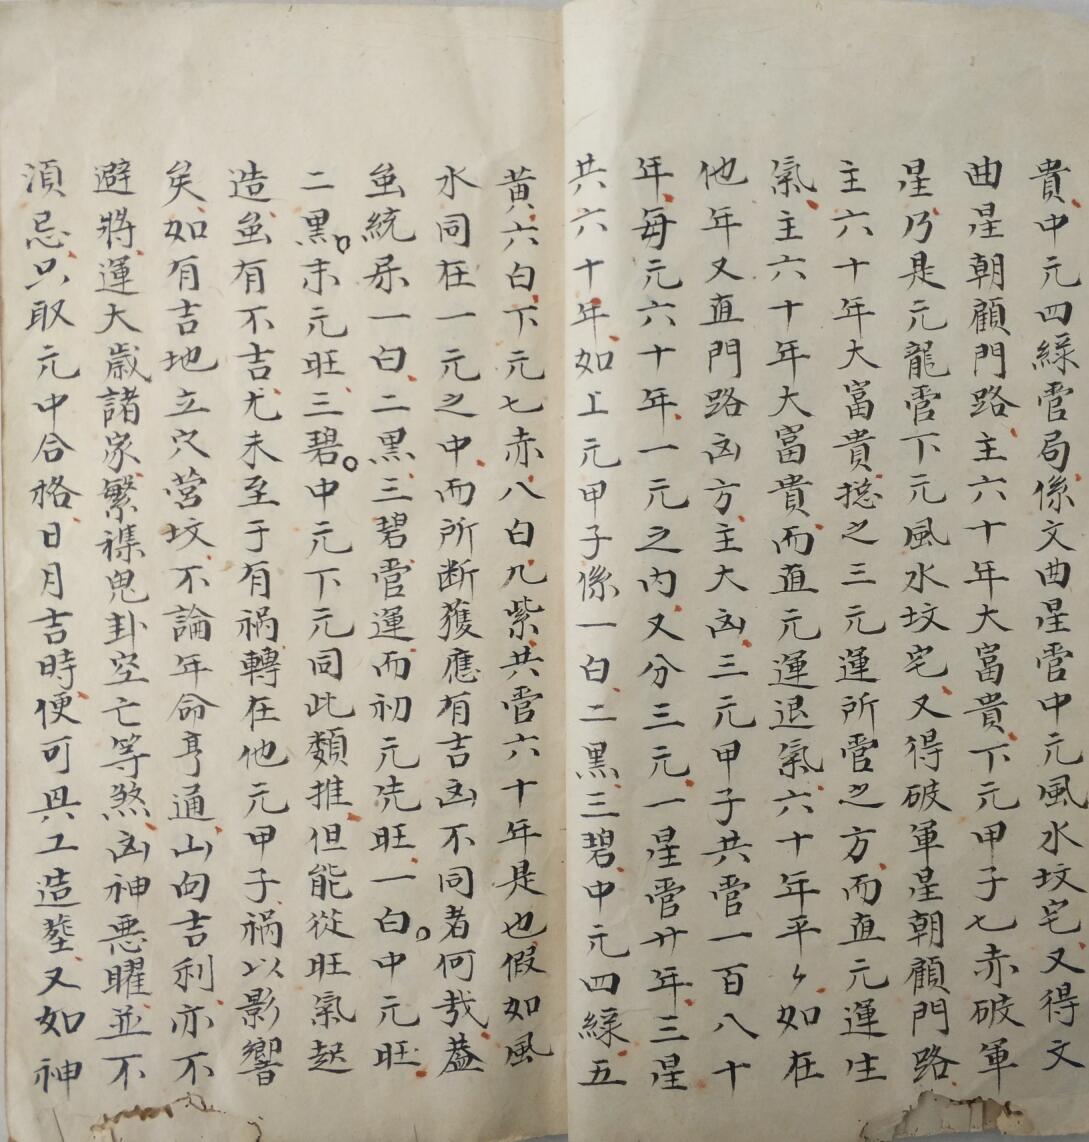 貴中元四綠管局係文曲星管中元風水坟宅又得文
曲星朝顧門路主六十年大富貴下元甲子七赤破軍
星乃是元龍管下元風水坟宅又得破軍星朝顧門路
主六十年大富貴揔之三元運所管之方而直元運生
氣主六十年大富貴而直元運退氣六十年平々如在
他年又直門路凶方主大凶三元甲子共管一百八十
年每元六十年一元之内又分三元一星管廿年三星
共六十年如上元甲子係一白二黑三碧中元四綠五
黃六白下元七赤八白九紫共管六十年是也假如風
水同在一元之中而所断獲應有吉凶不同者何哉蓋
虽統系一白二黑三碧管運而初元先旺一白中元旺
二黑末元旺三碧中元下元同此類推但能從旺氣起
造虽有不吉尤未至于有祸轉在他元甲子祸以影響
矣如有吉地立穴营坟不論年命亨通山向吉利亦不
避將運大歲諸家繁襍鬼卦空亡等煞凶神悪曜並不
湏忌只取元中合格日月吉時便可興工造塟又如神